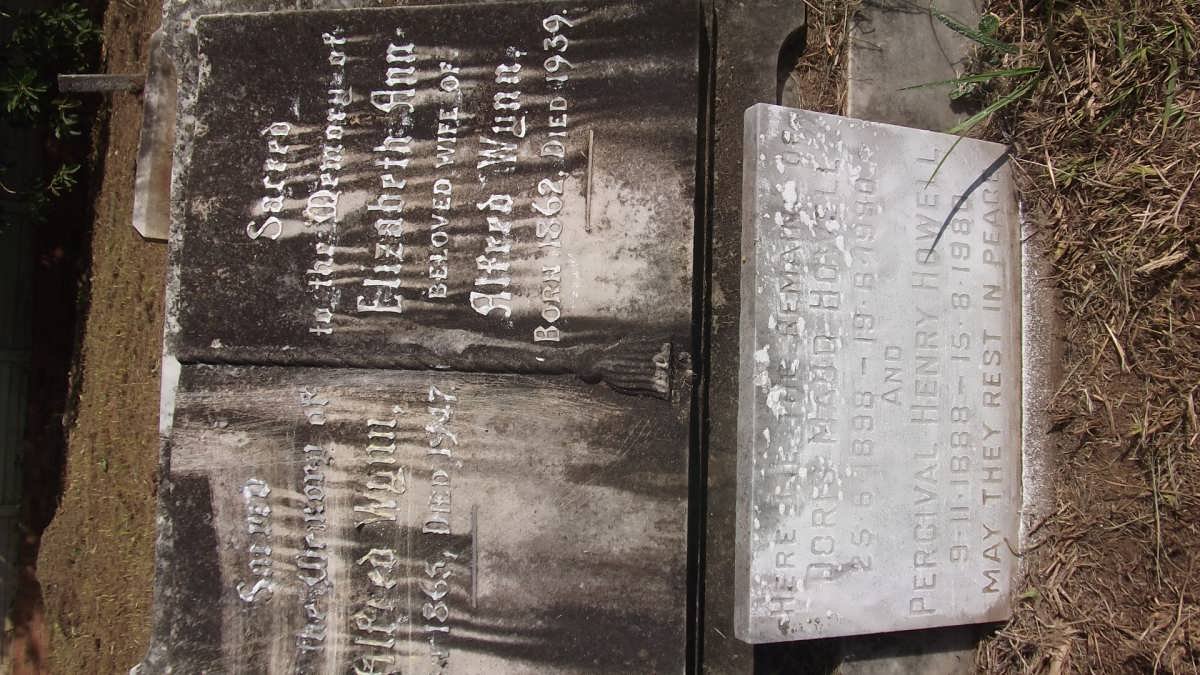 Sacred
to the Memory of
Elizabeth Ann
BELOVED WIFE OF
Alfred Wynn,
BORN 1862, DIED 1939.
Sacred
the Memory of
Alfred Wynn,
1865, DIED 1947.
HERE LIE THE REMAINS OF
DORIS MAUD HOWELL
25·6·1898 – 19·8·1990
AND
PERCIVAL HENRY HOWELL
9·11·1888 – 15·8·1981
MAY THEY REST IN PEACE